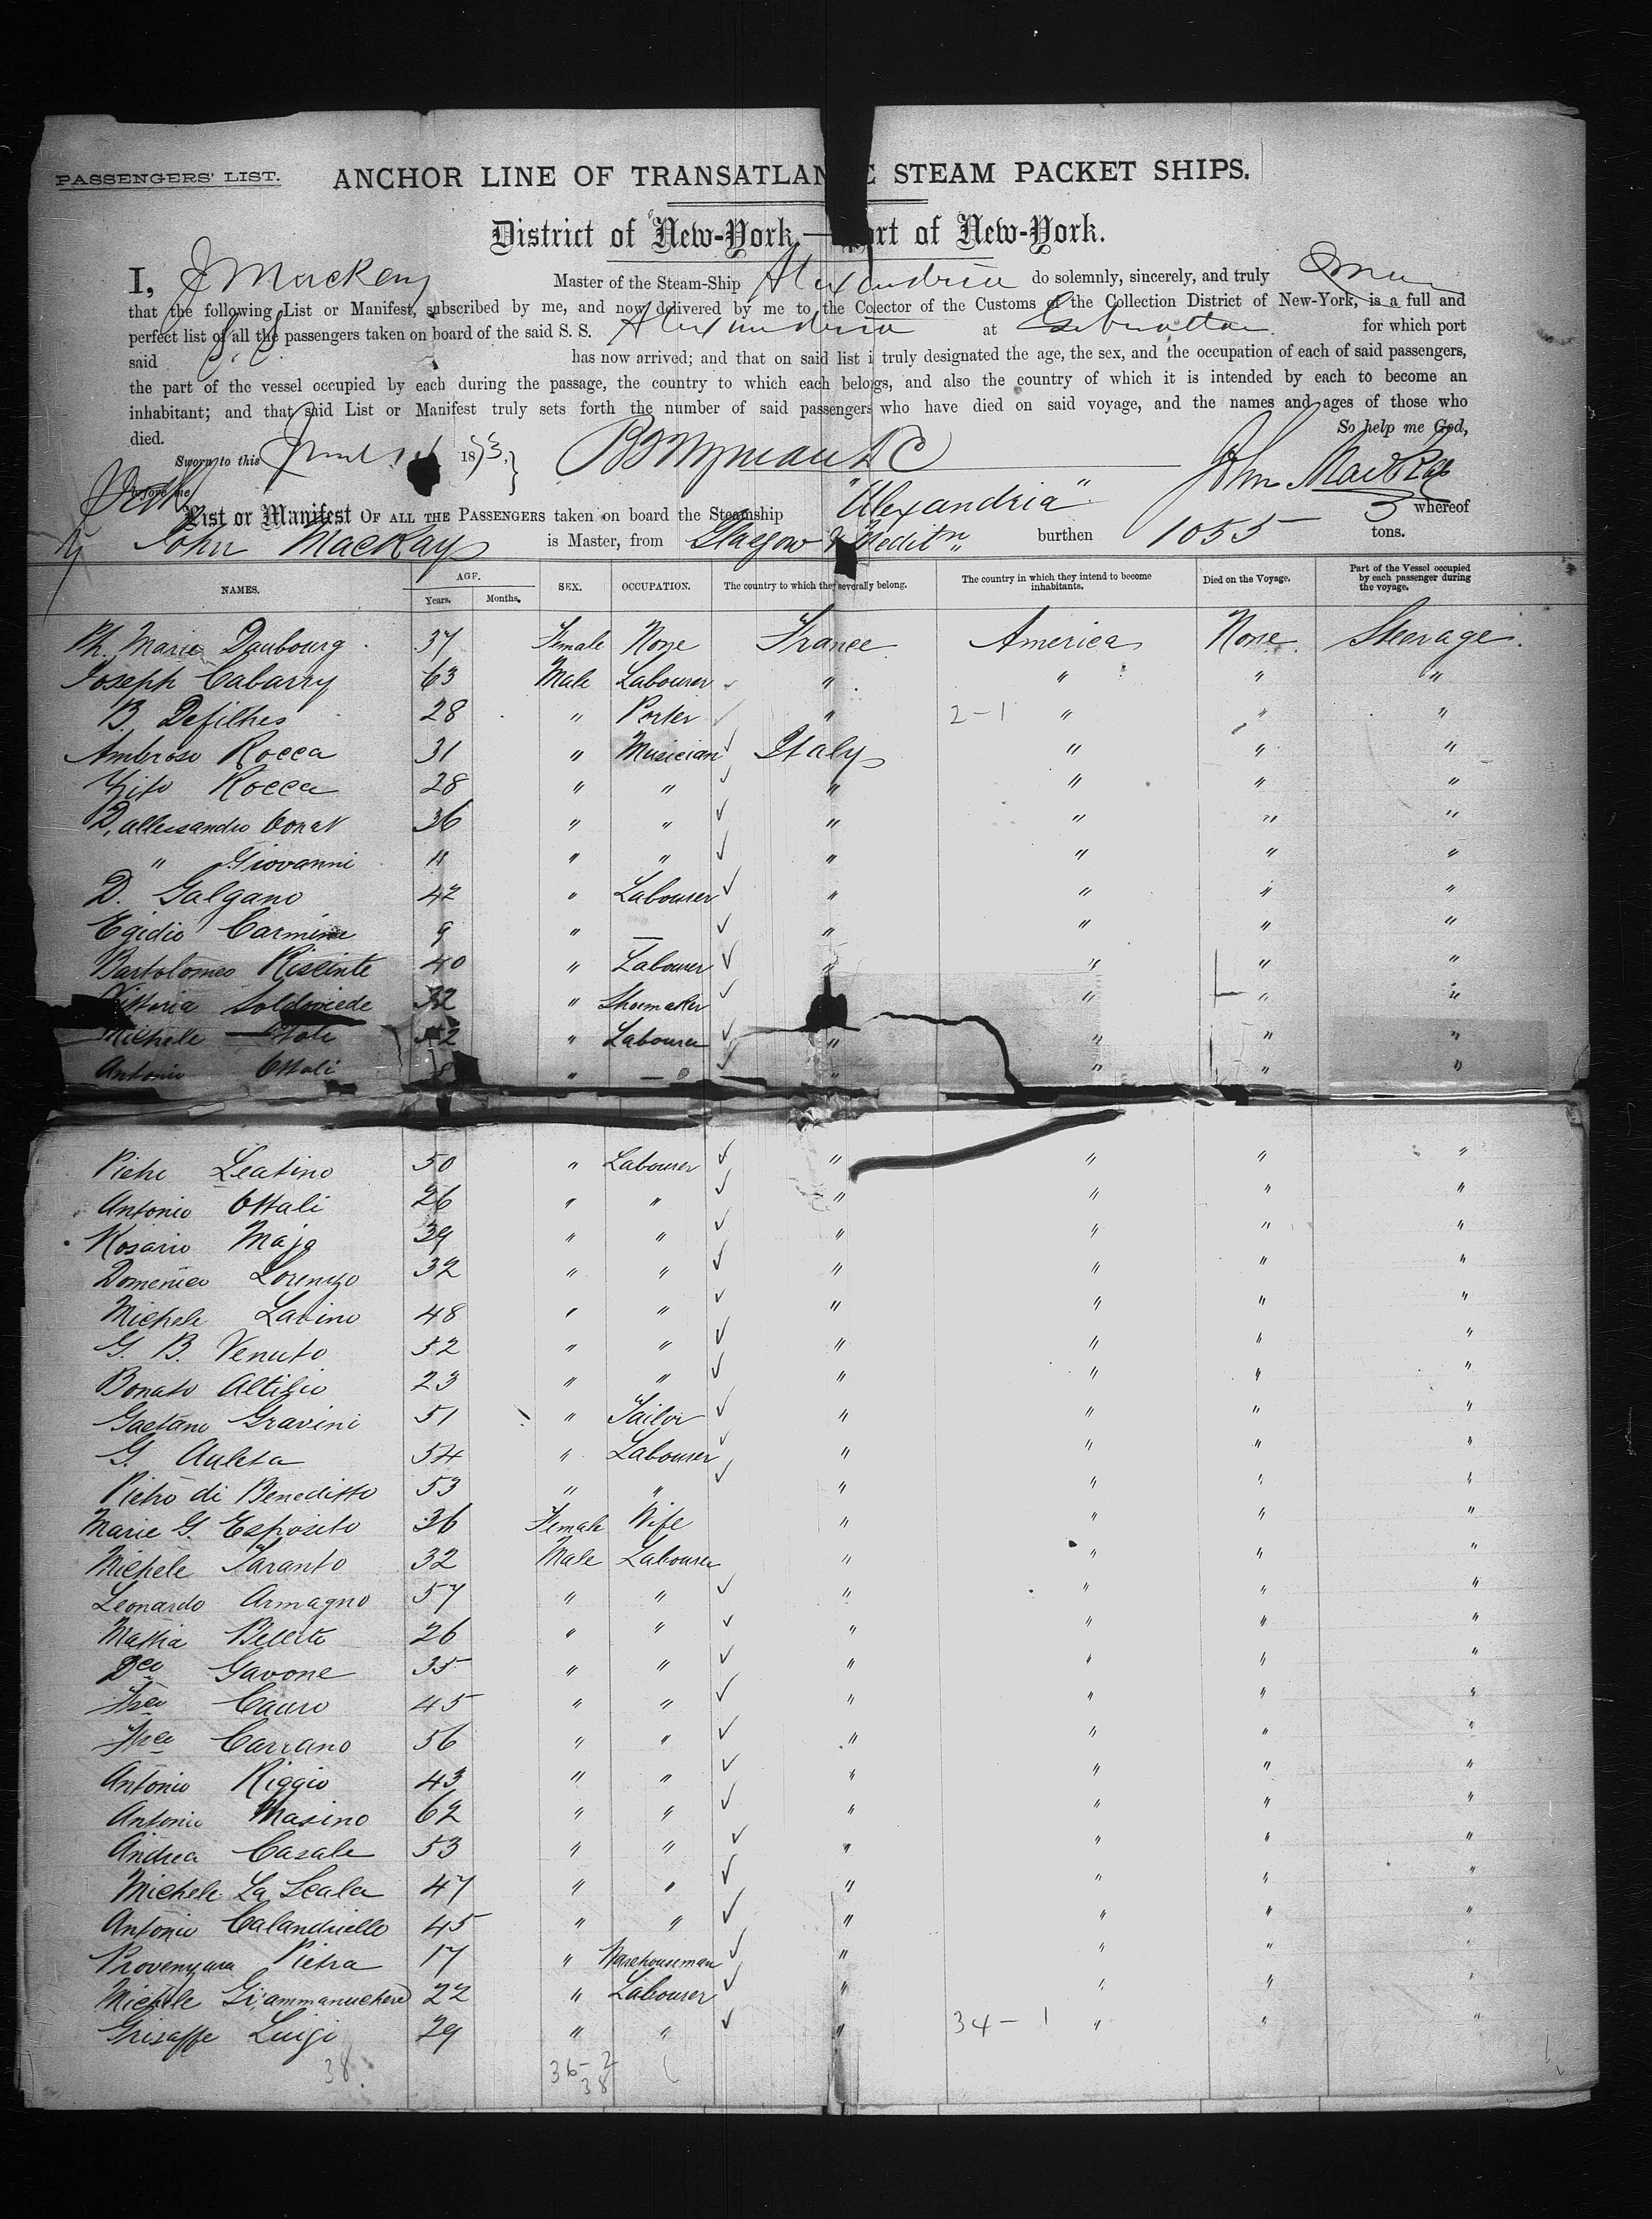 PASSENGERS' LIST. ANCHOR LINE OF TRANSATLAN C STEAM PACKET SHIPS.
District of New-York.— ort of New-York.
I, J Mackay Master of the Steam-Ship Alexandria do solemnly, sincerely, and truly
that the following List or Manifest, subscribed by me, and now delivered by me to the Colector of the Customs of the Collection District of New-York, is a full and
perfect list of all the passengers taken on board of the said S. S. Alexandria at Gibraltar for which port
said S.S. has now arrived; and that on said list i truly designated the age, the sex, and the occupation of each of said passengers,
the part of the vessel occupied by each during the passage, the country to which each belongs, and also the country of which it is intended by each to become an
inhabitant; and that said List or Manifest truly sets forth the number of said passengers who have died on said voyage, and the names and ages of those who
died. So help me God,
Sworn to this 1873 John MacKay
before me
List or Manifest OF ALL THE PASSENGERS taken on board the Steamship "Alexandria" whereof
John MacKay is Master, from Glasgow & Meditn burthen 1055 tons.
NAMES. AGE. Years. Months. SEX. OCCUPATION. The country to which they severally belong. The country in which they intend to become inhabitants. Died on the Voyage. Part of the Vessel occupied by each passenger during the voyage.
Ph. Marie Daubourg 37 Female None France America None Steerage.
Joseph Cabarry 63 Male Labourer " " " "
B. Defilhes 28 " Porter " 2-1 " " "
Ambroso Rocca 31 " Musician Italy " " "
Vito Rocca 28 " " " " " "
D. allessandro Conar 36 " " " " " "
" Giovanni 11 " " " " " "
D. Galgano 42 " Labourer " " " "
Egidio Carmine 9 " — " " " "
Bartolomeo Riscinte 40 " Labourer " " " "
32 " Shoemaker " " "
Michele 52 " Labourer " " " "
Antonio Ottati " — " " " "
Pietro Leatino 50 " Labourer " " " "
Antonio Ottati 26 " " " " " "
Rosario Maja 39 " " " " " "
Domenico Lorenzo 32 " " " " " "
Michele Lavino 48 " " " " " "
G. B. Venuto 52 " " " " " "
Bonato Altilio 23 " " " " " "
Gaetano Gravini 51 " Tailor " " " "
G. Auleta 54 " Labourer " " " "
Pietro di Beneditto 53 " " " " " "
Marie G. Esposito 36 Female Wife " " " "
Michele Taranto 32 Male Labourer " " " "
Leonardo Armagno 57 " " " " " "
Mattia Belleti 26 " " " " " "
Dco Gavone 35 " " " " " "
Fco Cauro 45 " " " " " "
Fco Carrano 56 " " " " " "
Antonio Riggio 43 " " " " " "
Antonio Masino 62 " " " " " "
Andrea Casale 53 " " " " " "
Michele La Scala 47 " " " " " "
Antonio Calandriello 45 " " " " " "
Provenzara Pietra 17 " Warehouseman " " " "
Michele Giammanuchere 22 " Labourer " " " "
Grisaffe Luigi 29 " " " 34-1 " " "
38. 36-2
38